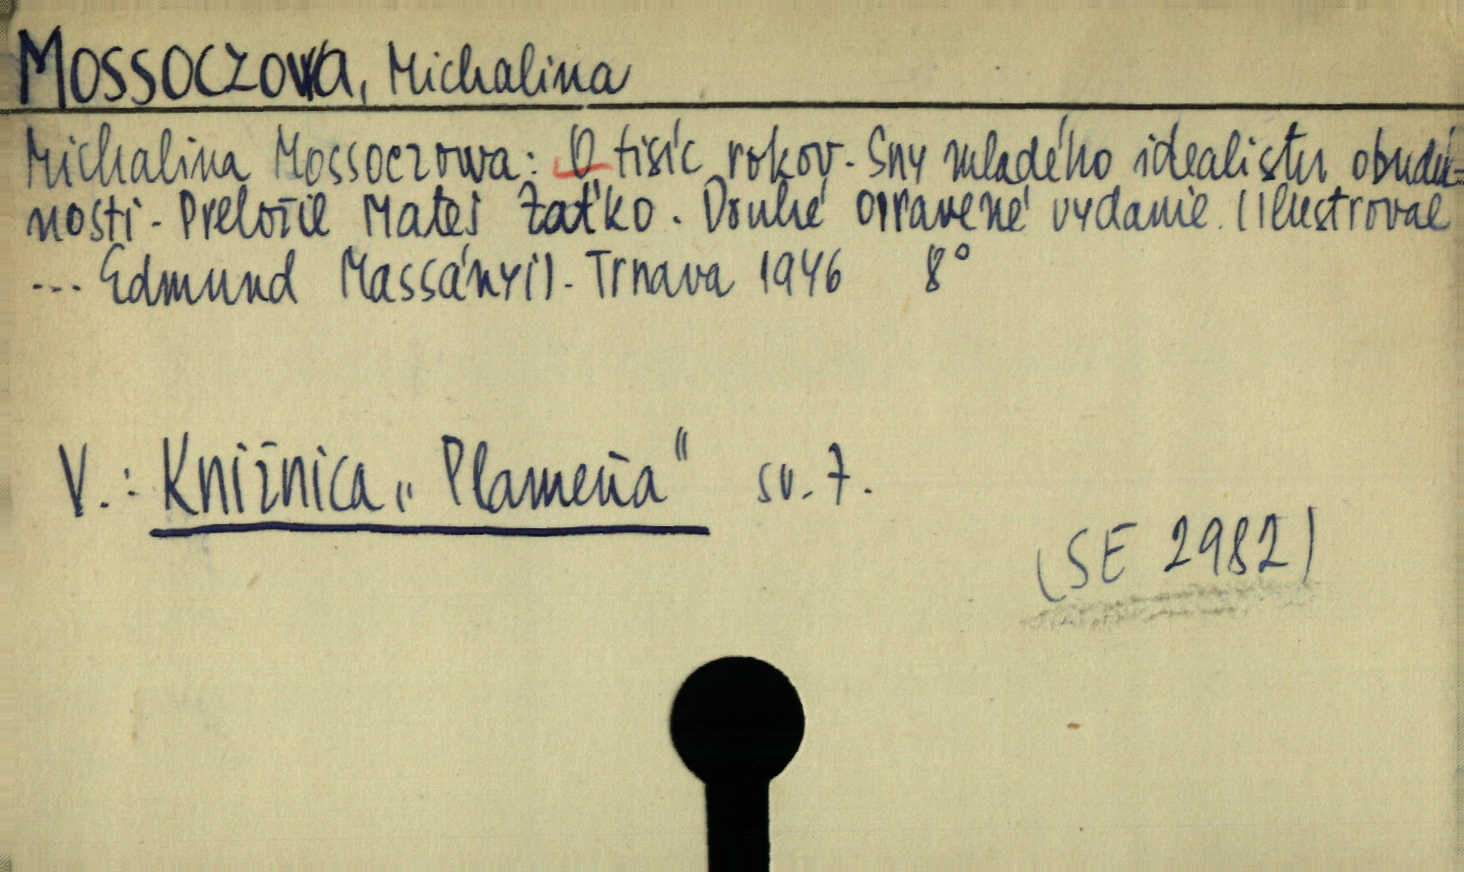 Mossoczowa, Michalina
Michalina Mossoczowa: O tisíc rokov. Sny mladého idealistu o budúc=
nosti. Preložil Matej Žaťko. Druhé opravené vydanie. (Ilustroval
... Edmund Massányi). Trnava 1946 8°
V.: Knižnica „Plameňa“ sv. 7.
(SE 2982)